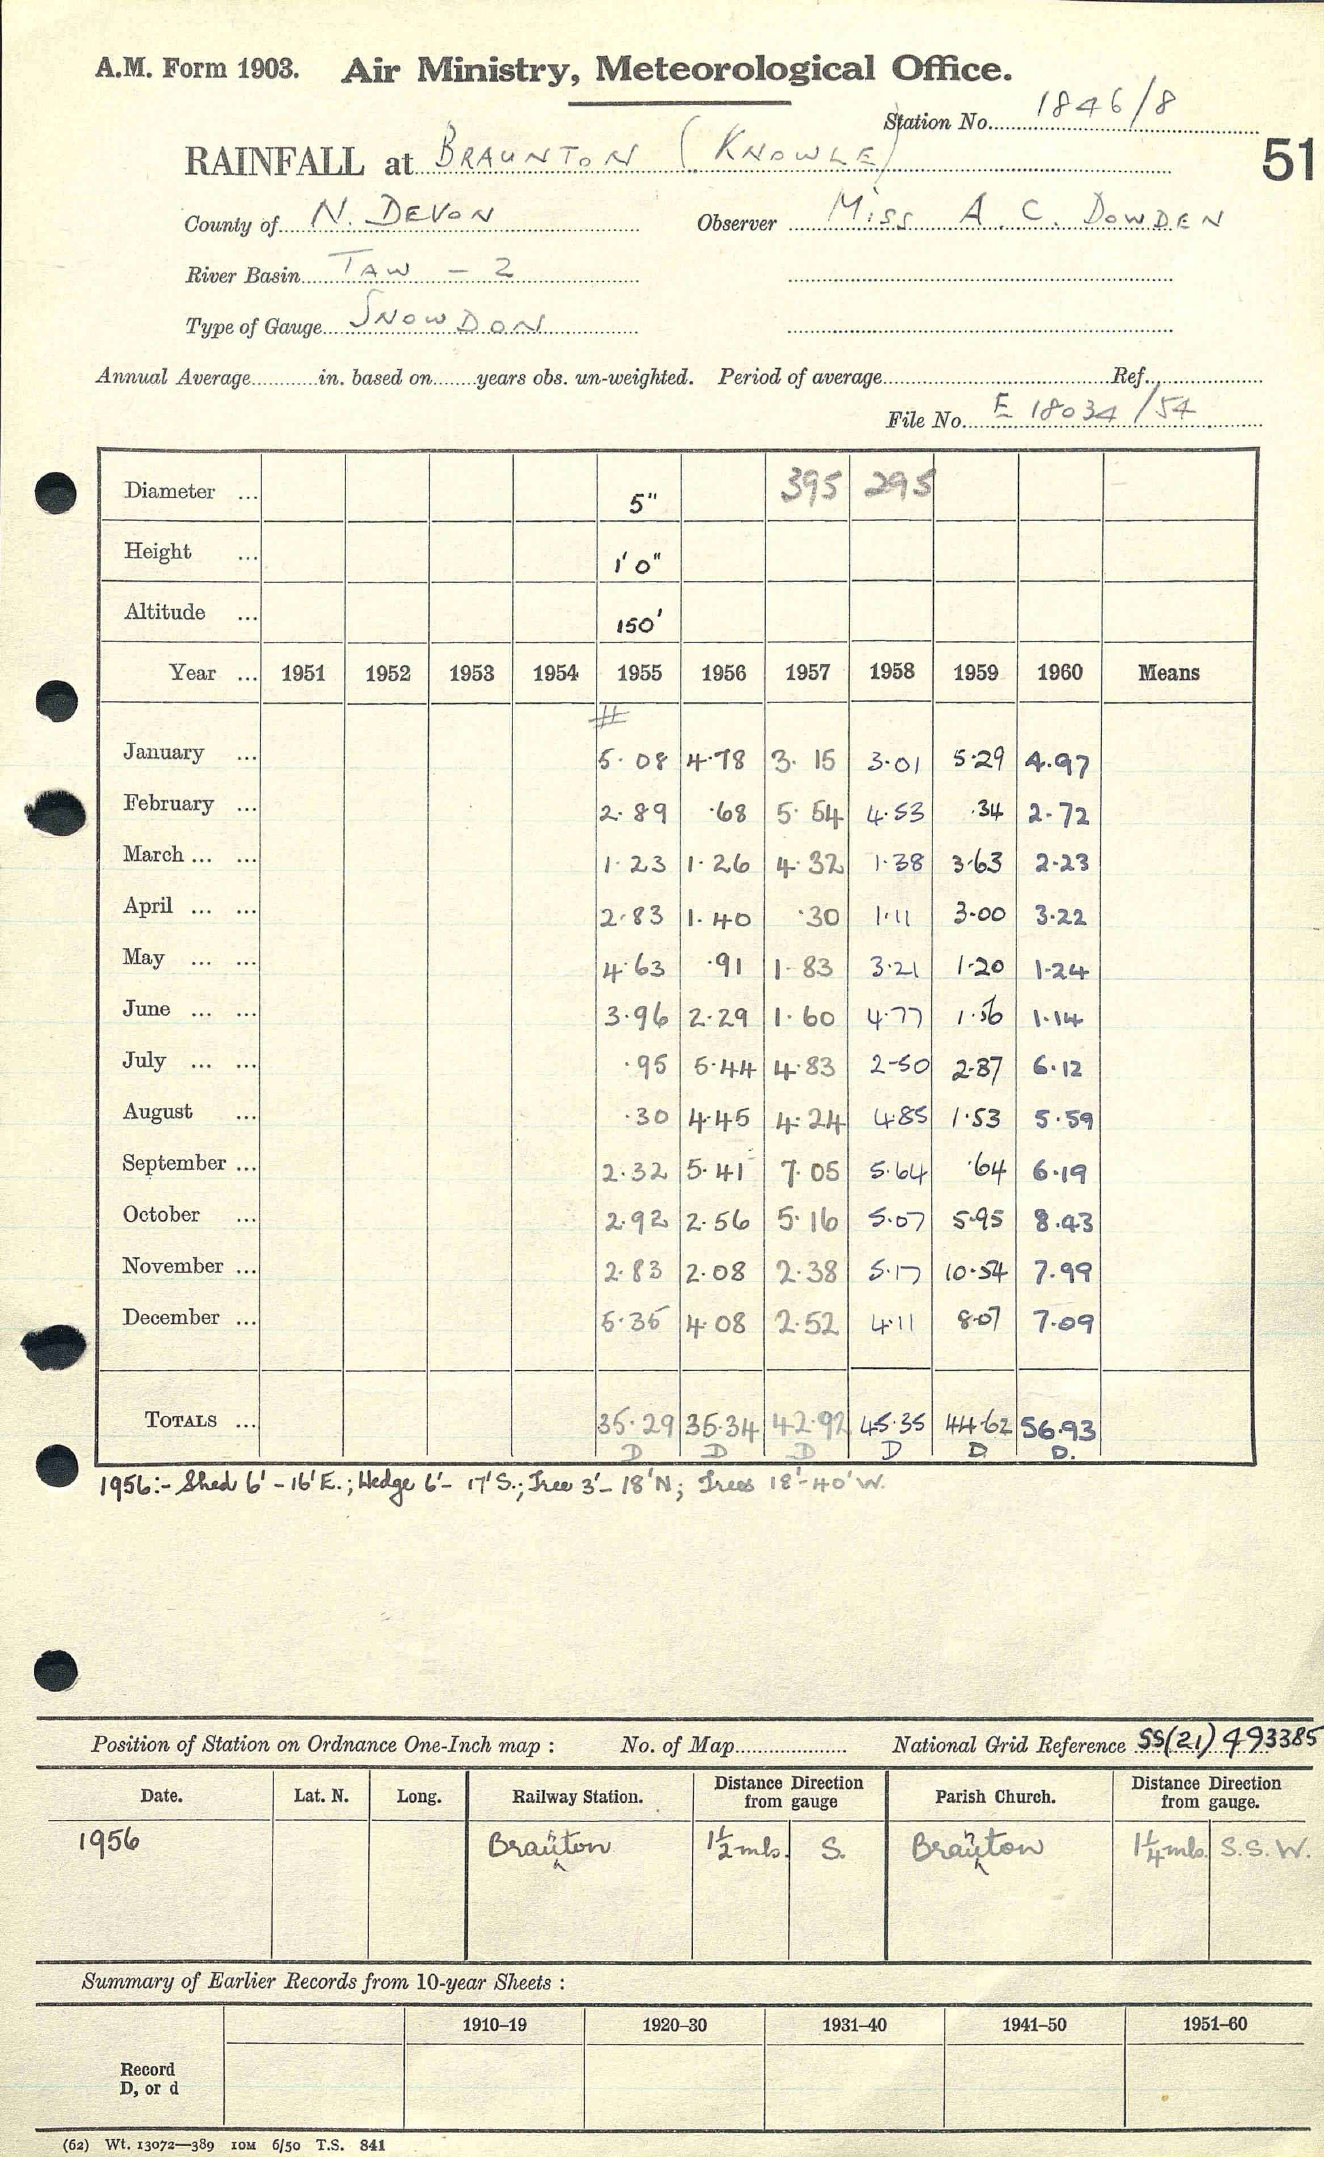 A.M. Form 1903. Air Ministry, Meteorological Office.
Station No. 1846/8
RAINFALL at BRAUNTON (KNOWLE)
51
County of N. DEVON Observer MISS A. C. DOWDEN
River Basin TAW - 2
Type of Gauge SNOWDON
Annual Average in. based on years obs. un-weighted. Period of average Ref.
File No. E 18034/54
Diameter ... 5" 395 295
Height ... 1' 0"
Altitude ... 150'
Year ... 1951 1952 1953 1954 1955 1956 1957 1958 1959 1960 Means
#
January ... 5.08 4.78 3.15 3.01 5.29 4.97
February ... 2.89 .68 5.54 4.53 .34 2.72
March ... ... 1.23 1.26 4.32 1.38 3.63 2.23
April ... ... 2.83 1.40 .30 1.11 3.00 3.22
May ... ... 4.63 .91 1.83 3.21 1.20 1.24
June ... ... 3.96 2.29 1.60 4.77 1.56 1.14
July ... ... .95 5.44 4.83 2.50 2.87 6.12
August ... .30 4.45 4.24 4.85 1.53 5.59
September ... 2.32 5.41 7.05 5.64 .64 6.19
October ... 2.92 2.56 5.16 5.07 5.95 8.43
November ... 2.83 2.08 2.38 5.17 10.54 7.99
December ... 5.35 4.08 2.52 4.11 8.07 7.09
TOTALS ... 35.29 35.34 42.92 45.35 44.62 56.93
D D D D D D.
1956:- Shed 6' - 16' E.; Hedge 6' - 17' S.; Tree 3' - 18' N; Trees 18' - 40' W.
Position of Station on Ordnance One-Inch map : No. of Map National Grid Reference SS(21) 493385
Date. Lat. N. Long. Railway Station. Distance Direction from gauge Parish Church. Distance Direction from gauge.
1956 Braunton 1½ mls. S. Braunton 1¼ mls. S.S.W.
Summary of Earlier Records from 10-year Sheets :
1910–19 1920–30 1931–40 1941–50 1951–60
Record
D, or d
(62) Wt. 13072—389 10M 6/50 T.S. 841